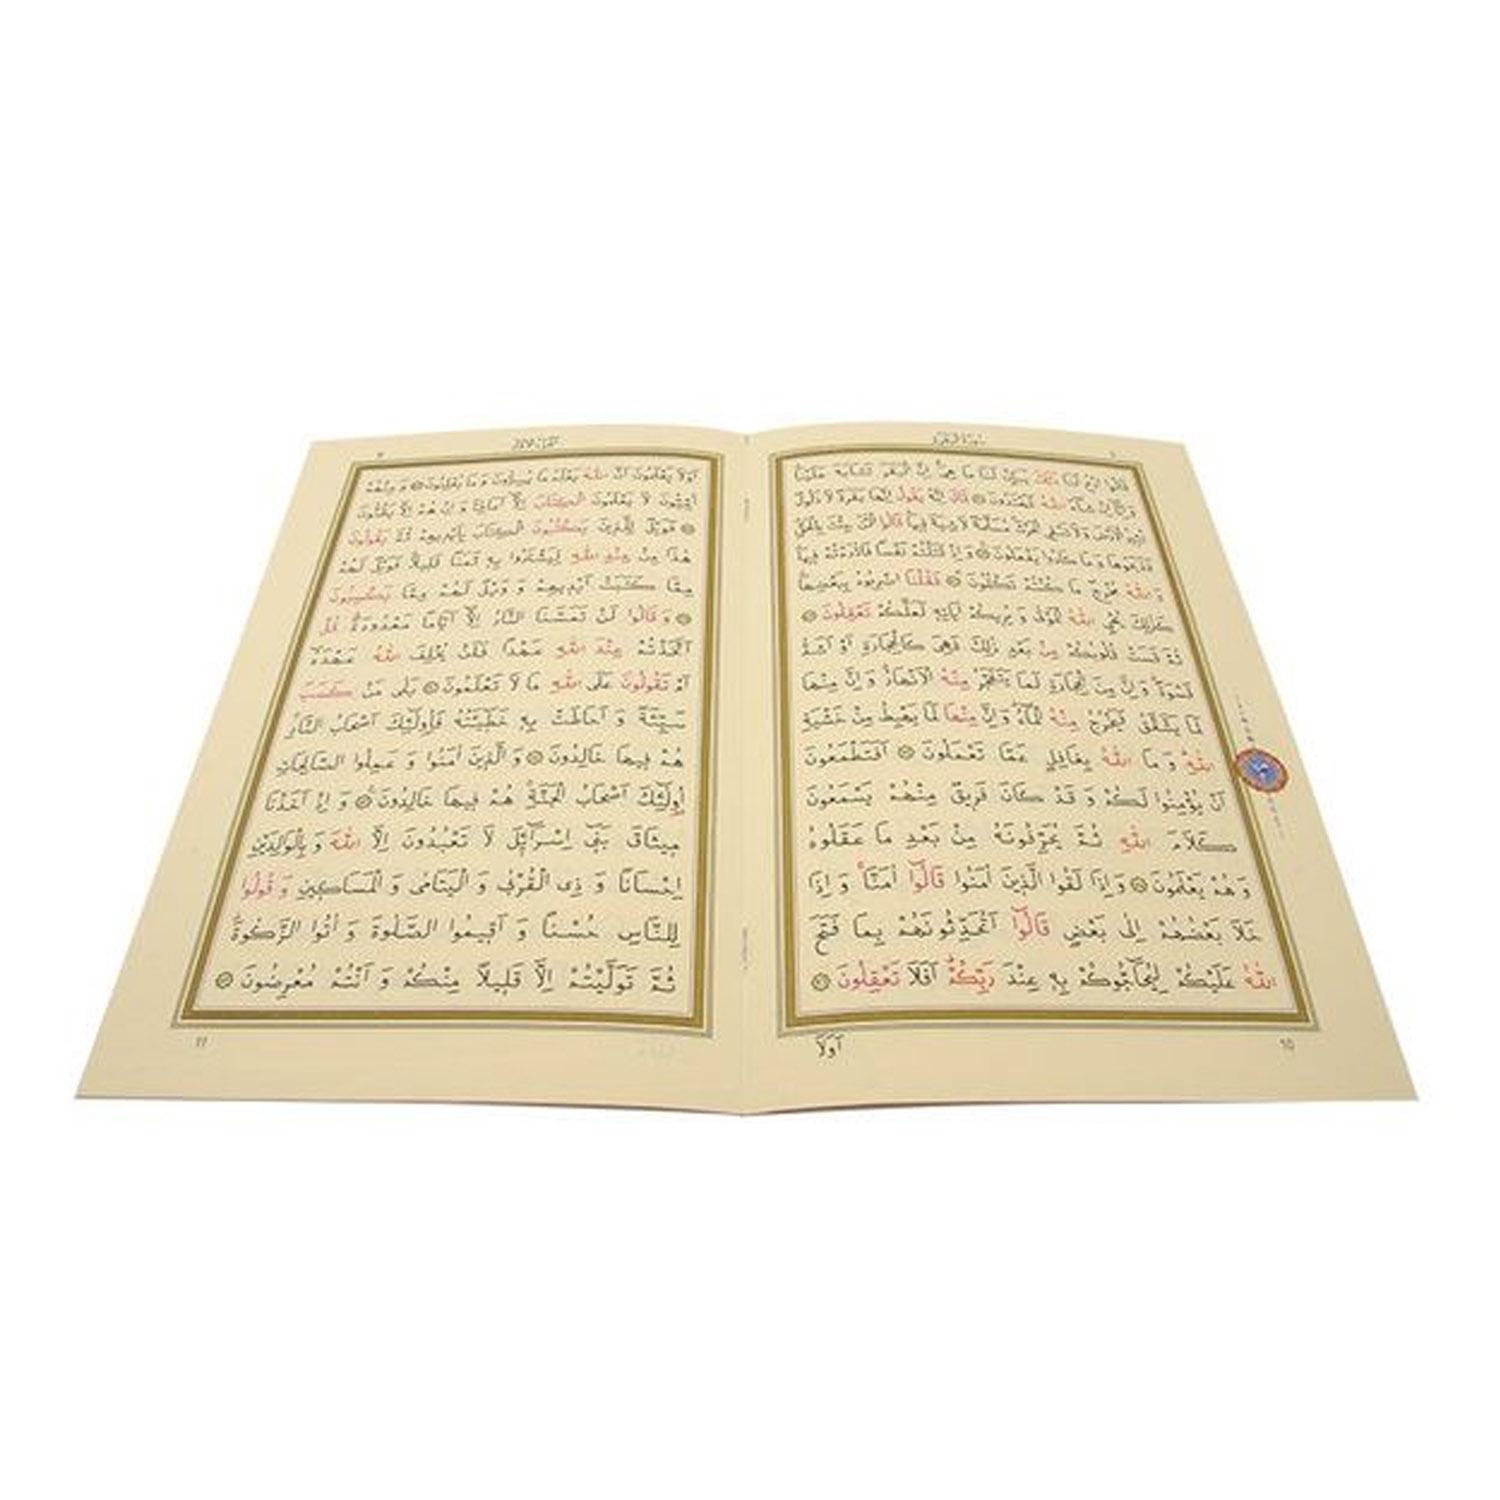 سورة البقرة
قَالُوا ادْعُ لَنَا رَبَّكَ يُبَيِّنْ لَنَا مَا هِيَ اِنَّ الْبَقَرَ تَشَابَهَ عَلَيْنَا
وَ اِنَّٓا اِنْ شَٓاءَ اللّٰهُ لَمُهْتَدُونَ قَالَ اِنَّهُ يَقُولُ اِنَّهَا بَقَرَةٌ لَا ذَلُولٌ
تُثِيرُ الْاَرْضَ وَ لَا تَسْقِي الْحَرْثَ مُسَلَّمَةٌ لَا شِيَةَ فِيهَا قَالُوا الْـٰٔنَ جِئْتَ بِالْحَقِّ
فَذَبَحُوهَا وَ مَا كَادُوا يَفْعَلُونَ وَ اِذْ قَتَلْتُمْ نَفْسًا فَادّٰرَءْتُمْ فِيهَا
وَ اللّٰهُ مُخْرِجٌ مَا كُنْتُمْ تَكْتُمُونَ فَقُلْنَا اضْرِبُوهُ بِبَعْضِهَا
كَذٰلِكَ يُحْيِ اللّٰهُ الْمَوْتٰى وَ يُرِيكُمْ اٰيَاتِهِ لَعَلَّكُمْ تَعْقِلُونَ
ثُمَّ قَسَتْ قُلُوبُكُمْ مِنْ بَعْدِ ذٰلِكَ فَهِيَ كَالْحِجَارَةِ اَوْ اَشَدُّ
قَسْوَةً وَ اِنَّ مِنَ الْحِجَارَةِ لَمَا يَتَفَجَّرُ مِنْهُ الْاَنْهَارُ وَ اِنَّ مِنْهَا
لَمَا يَشَّقَّقُ فَيَخْرُجُ مِنْهُ الْمَٓاءُ وَ اِنَّ مِنْهَا لَمَا يَهْبِطُ مِنْ خَشْيَةِ
اللّٰهِ وَ مَا اللّٰهُ بِغَافِلٍ عَمَّا تَعْمَلُونَ اَفَتَطْمَعُونَ
اَنْ يُؤْمِنُوا لَكُمْ وَ قَدْ كَانَ فَرِيقٌ مِنْهُمْ يَسْمَعُونَ
كَلَامَ اللّٰهِ ثُمَّ يُحَرِّفُونَهُ مِنْ بَعْدِ مَا عَقَلُوهُ
وَ هُمْ يَعْلَمُونَ وَ اِذَا لَقُوا الَّذِينَ اٰمَنُوا قَالُٓوا اٰمَنَّا وَ اِذَا
خَلَا بَعْضُهُمْ اِلٰى بَعْضٍ قَالُٓوا اَتُحَدِّثُونَهُمْ بِمَا فَتَحَ
اللّٰهُ عَلَيْكُمْ لِيُحَٓاجُّوكُمْ بِهِ عِنْدَ رَبِّكُمْ اَفَلَا تَعْقِلُونَ
اَوَلَا
10
اَوَلَا يَعْلَمُونَ اَنَّ اللّٰهَ يَعْلَمُ مَا يُسِرُّونَ وَ مَا يُعْلِنُونَ وَ مِنْهُمْ
اُمِّيُّونَ لَا يَعْلَمُونَ الْكِتَابَ اِلَّٓا اَمَانِيَّ وَ اِنْ هُمْ اِلَّا يَظُنُّونَ
فَوَيْلٌ لِلَّذِينَ يَكْتُبُونَ الْكِتَابَ بِاَيْدِيهِمْ ثُمَّ يَقُولُونَ
هٰذَا مِنْ عِنْدِ اللّٰهِ لِيَشْتَرُوا بِهِ ثَمَنًا قَلِيلًا فَوَيْلٌ لَهُمْ
مِمَّا كَتَبَتْ اَيْدِيهِمْ وَ وَيْلٌ لَهُمْ مِمَّا يَكْسِبُونَ
وَ قَالُوا لَنْ تَمَسَّنَا النَّارُ اِلَّٓا اَيَّامًا مَعْدُودَةً قُلْ
اَتَّخَذْتُمْ عِنْدَ اللّٰهِ عَهْدًا فَلَنْ يُخْلِفَ اللّٰهُ عَهْدَهُ
اَمْ تَقُولُونَ عَلَى اللّٰهِ مَا لَا تَعْلَمُونَ بَلٰى مَنْ كَسَبَ
سَيِّئَةً وَ اَحَاطَتْ بِهِ خَطِٓيـَٔتُهُ فَاُولٰٓئِكَ اَصْحَابُ النَّارِ
هُمْ فِيهَا خَالِدُونَ وَ الَّذِينَ اٰمَنُوا وَ عَمِلُوا الصَّالِحَاتِ
اُولٰٓئِكَ اَصْحَابُ الْجَنَّةِ هُمْ فِيهَا خَالِدُونَ وَ اِذْ اَخَذْنَا
مِيثَاقَ بَنِٓي اِسْرَٓائِيلَ لَا تَعْبُدُونَ اِلَّا اللّٰهَ وَ بِالْوَالِدَيْنِ
اِحْسَانًا وَ ذِي الْقُرْبٰى وَ الْيَتَامٰى وَ الْمَسَاكِينِ وَ قُولُوا
لِلنَّاسِ حُسْنًا وَ اَقِيمُوا الصَّلٰوةَ وَ اٰتُوا الزَّكٰوةَ
ثُمَّ تَوَلَّيْتُمْ اِلَّا قَلِيلًا مِنْكُمْ وَ اَنْتُمْ مُعْرِضُونَ
11